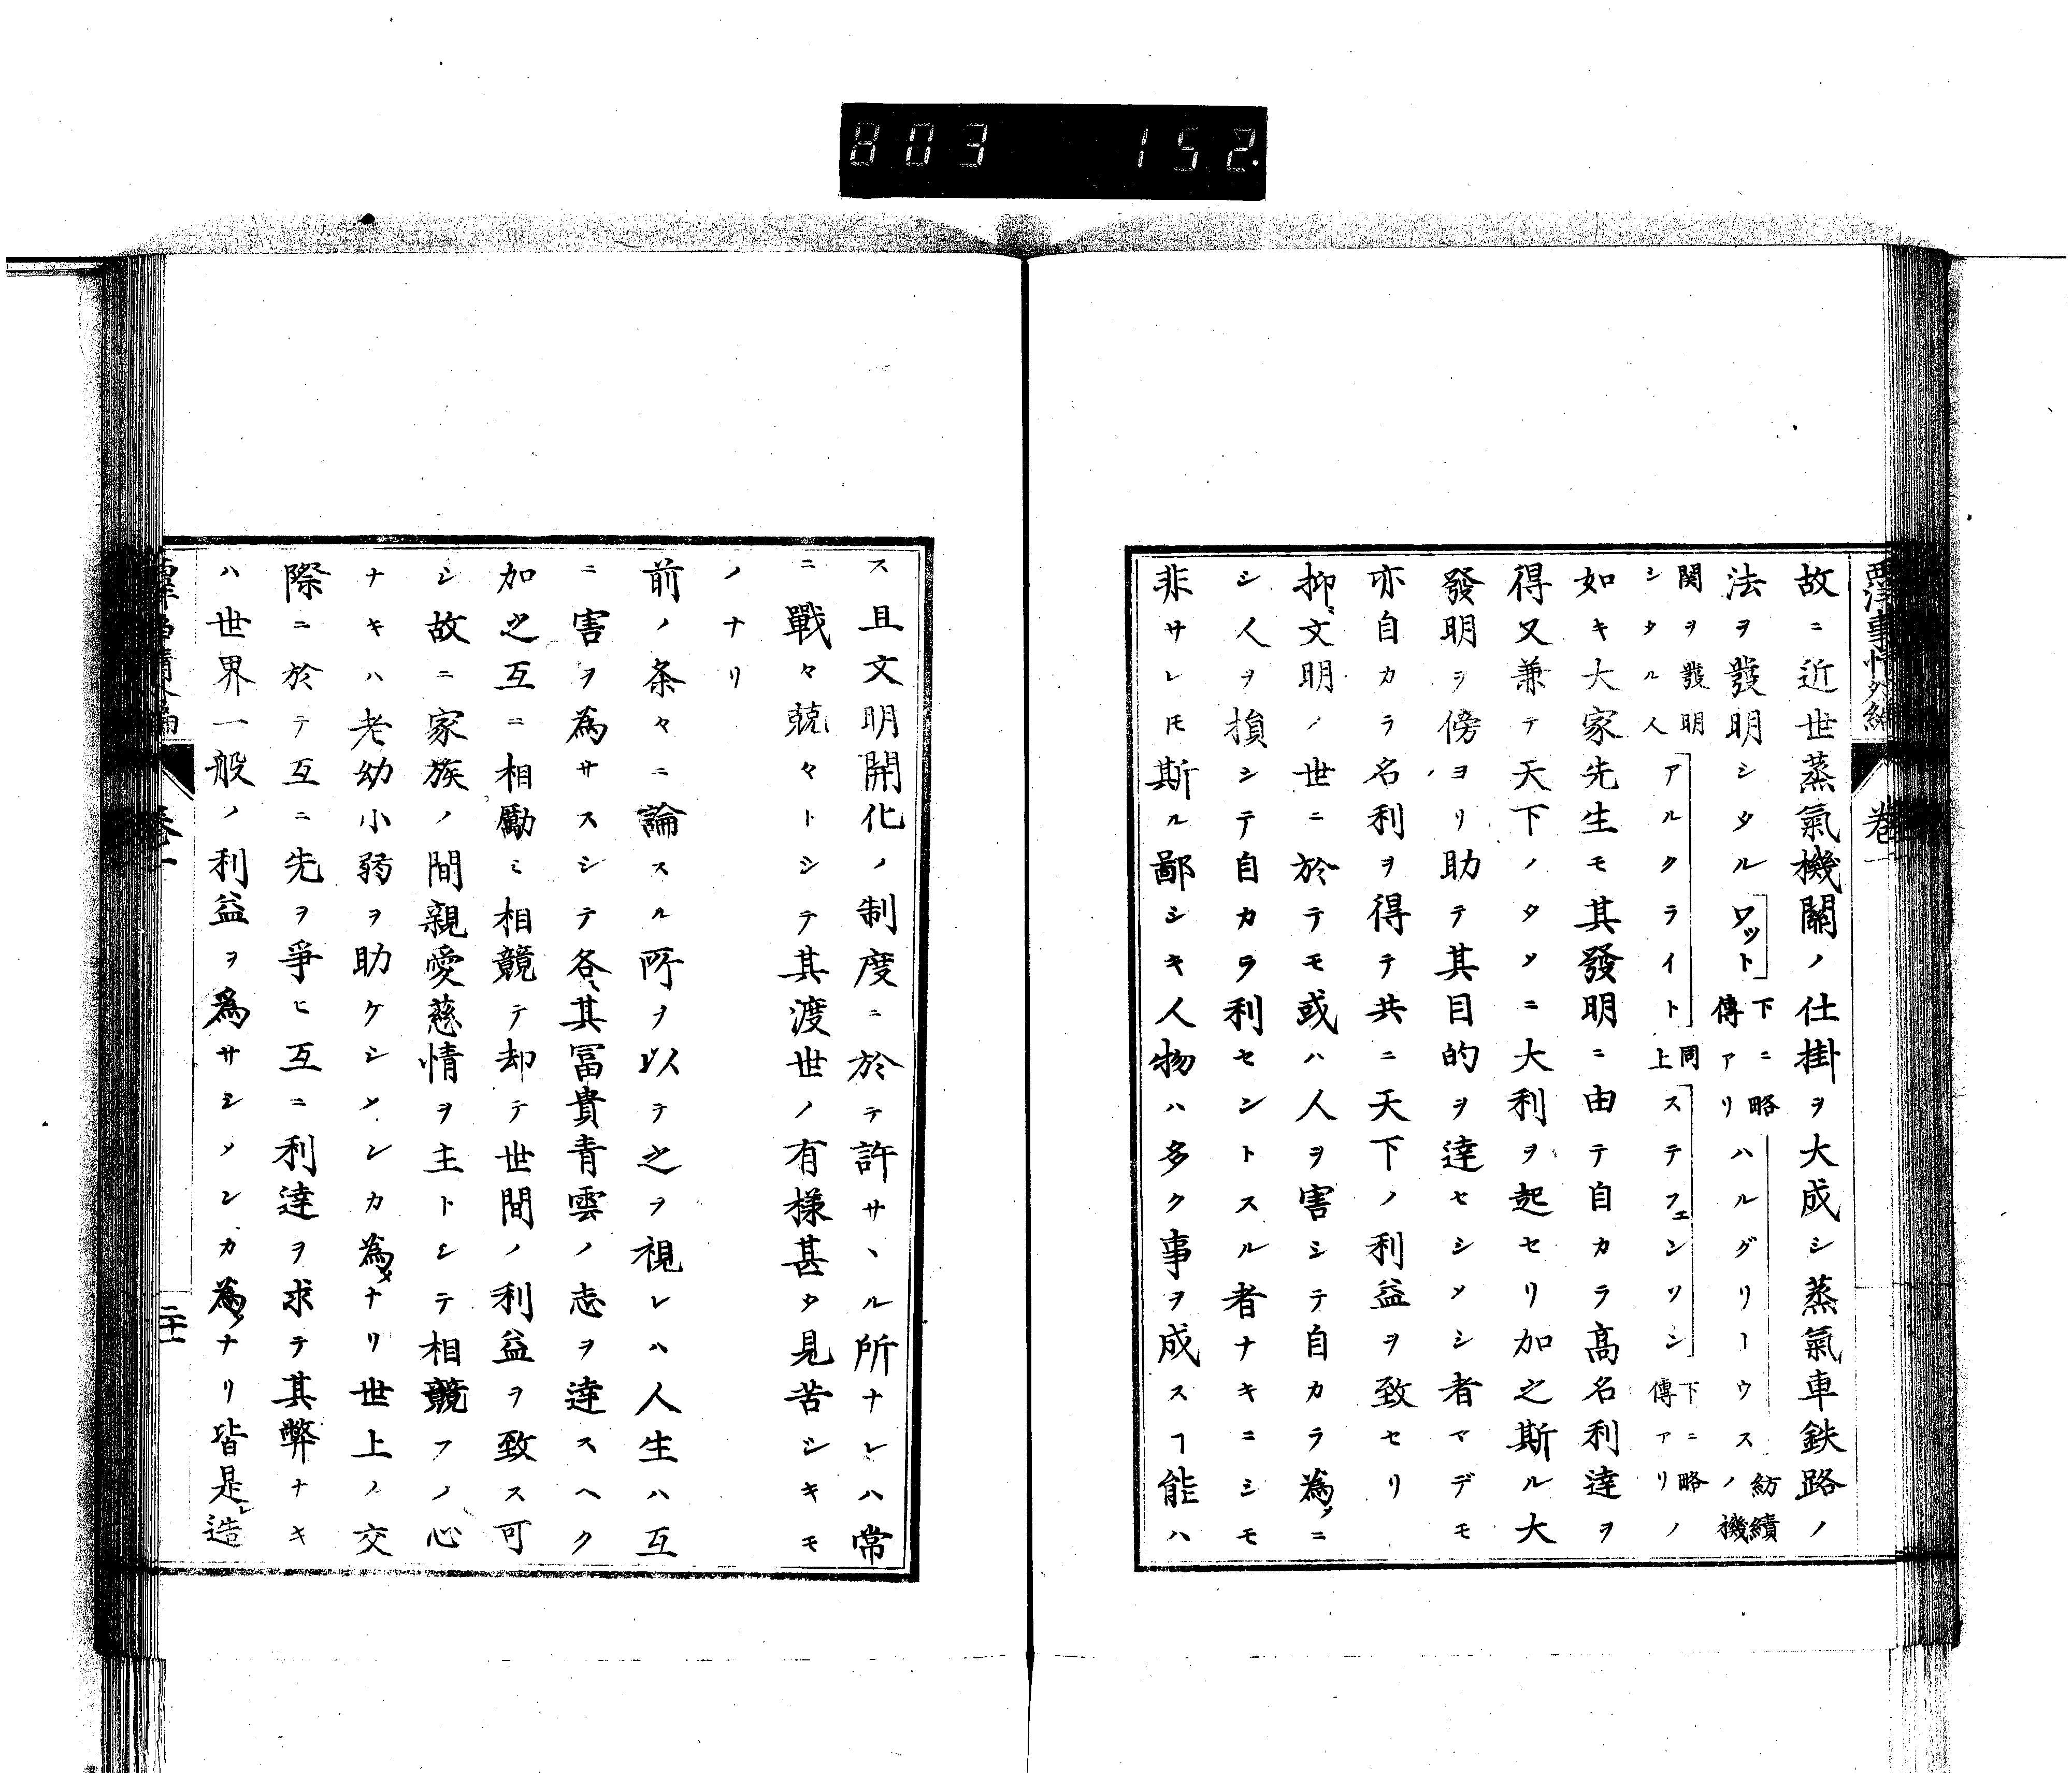 803 152
西洋事情外編 卷一
故ニ近世蒸氣機關ノ仕掛ヲ大成シ蒸氣車鉄路ノ
法ヲ發明シタルワット下ニ略傳アリハルグリーウスノ紡績機
関ヲ發明シタル人アルクライト同上ステフェンソン下ニ略傳アリノ
如キ大家先生モ其發明ニ由テ自カラ高名利達ヲ
得又兼テ天下ノタメニ大利ヲ起セリ加之斯ル大
發明ヲ傍ヨリ助テ其目的ヲ達セシメシ者マデモ
亦自カラ名利ヲ得テ共ニ天下ノ利益ヲ致セリ
抑〻文明ノ世ニ於テモ或ハ人ヲ害シテ自カラ為メニ
シ人ヲ損シテ自カラ利セントスル者ナキニシモ
非サレ𪜈斯ル鄙シキ人物ハ多ク事ヲ成スヿ能ハ
ス且文明開化ノ制度ニ於テ許サヽル所ナレハ常
ニ戰々兢々トシテ其渡世ノ有様甚タ見苦シキモ
ノナリ
前ノ条々ニ論スル所ヲ以テ之ヲ視レハ人生ハ互
ニ害ヲ為サスシテ各〻其冨貴青雲ノ志ヲ達スヘク
加之互ニ相勵ミ相競テ却テ世間ノ利益ヲ致ス可
シ故ニ家族ノ間親愛慈情ヲ主トシテ相競フノ心
ナキハ老幼小弱ヲ助ケシメンカ為メナリ世上ノ交
際ニ於テ互ニ先ヲ爭ヒ互ニ利達ヲ求テ其弊ナキ
ハ世界一般ノ利益ヲ為サシメンカ為メナリ皆是レ造
卷一
二十一